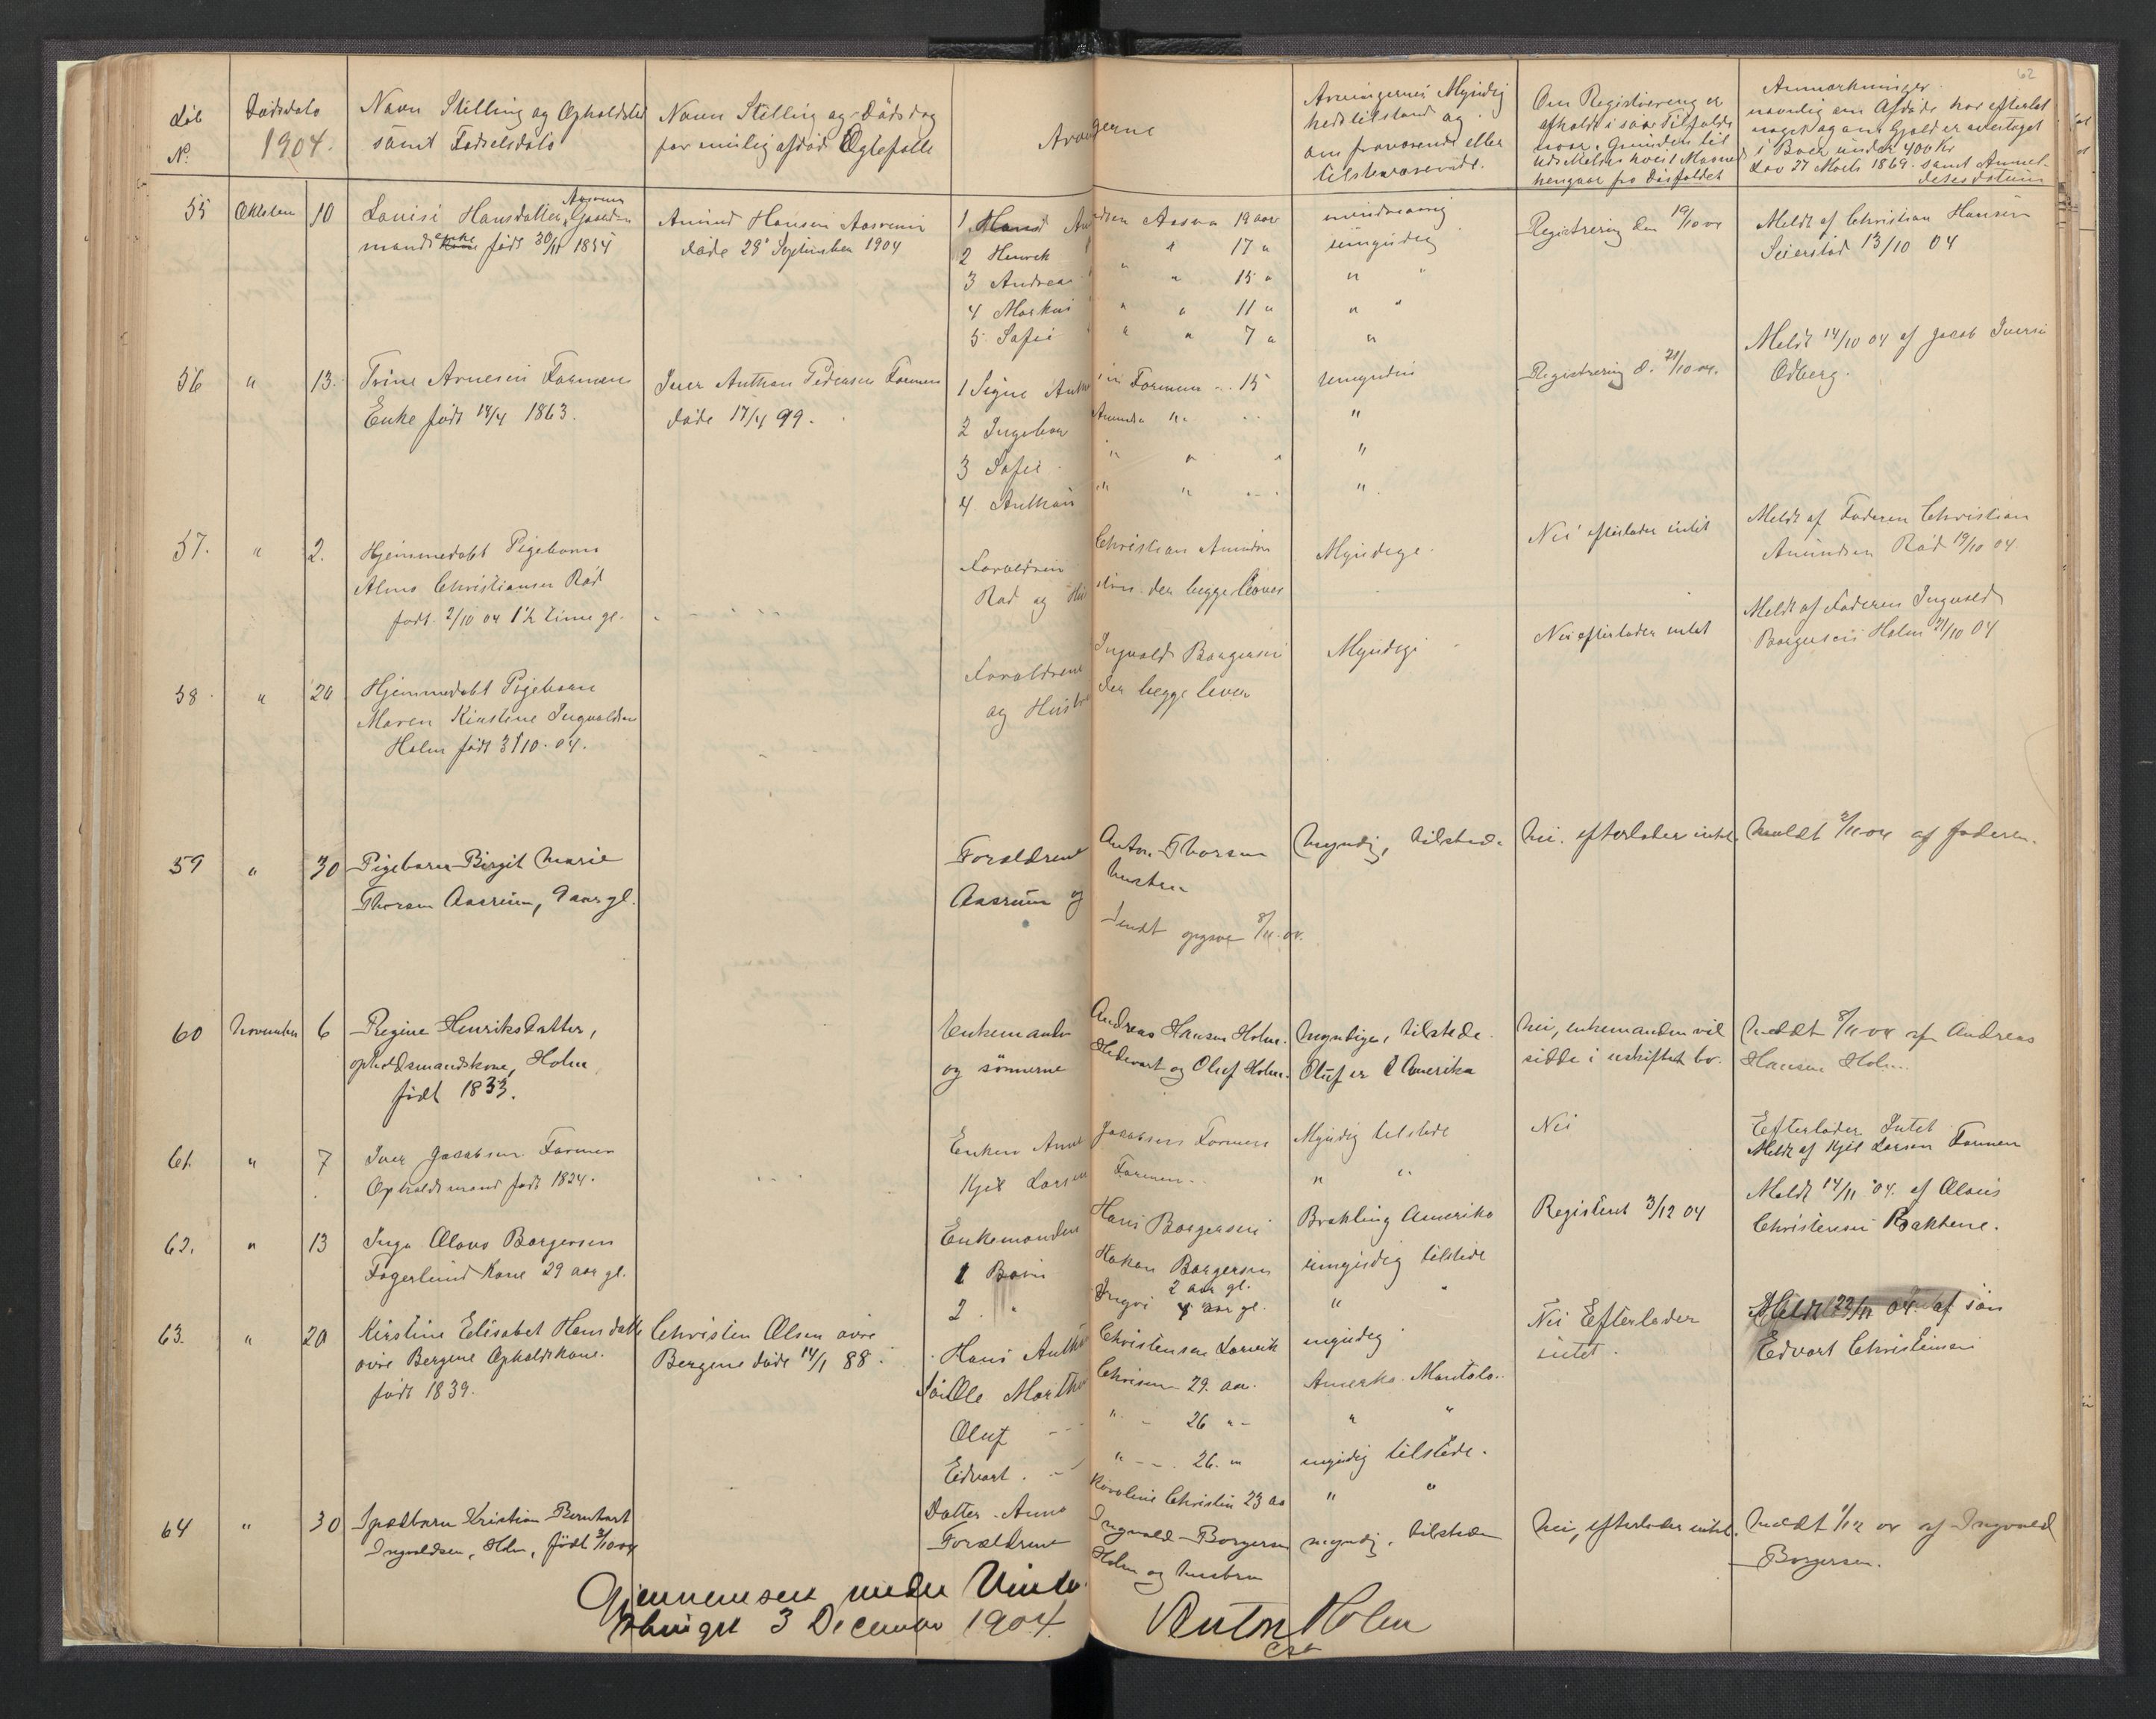 62
Löb No.
Dødsdato 1904.
Navn Stilling og Opholdsted
samt Fødselsdato
Navn Stilling og Dødsdag
for mulig afdød Ægtefælle
Arvingerne
Arvingernes Myndig
hedstilstand og
om fraværende eller
tilstedeværende.
Om Registrering er
afholdt i saa Tilfælde
naar. Grunden til
hengaar fra Dødsfaldet
Anmærkninger
navnlig om Afdøde har efterlat
noget og om Gjæld er overtaget
i Boer under 400 Kr
Lov 27 Marts 1869. samt Anmel-
delsesdatum
55 Oktober 10
Lovise Hansdatter, Gaardm
mands enke født 30/11 1854
Amund Hansen Aasrum
døde 28 September 1904
1 Hans Amundsen Aasru 19 aar
2 Henrik " 17 "
3 Andreas " " 15 "
4 Markus " " 11 "
5 Sofie " " 7 "
mindreaarig
umyndig
" "
" "
"
Registrering den 19/10 04
Meldt af Christian Hansen
Seierstad 13/10 04
56 " 13.
Trine Arnesen Farmen
Enke født 14/4 1863.
Iver Anthon Pedersen Farmen
døde 17/4 99.
1 Signe Farmen 15
2 Ingebor
3 Sofie " " "
4 Anthon " "
umyndig
"
"
"
Registrering d. 21/10 04.
Meldt 14/10 04 af Jacob Iversen
Odberg.
57. " 2.
Hjemmedøbt Pigebarn
Alma Christiansen Råd
født. 2/10 04 1½ time gl.
Forældrene Christian Amundsen
Råd og Hustru der begge lever
Myndige.
Nei efterlader intet
Meldt af Faderen Christian
Amundsen Råd 19/10 04.
58 " 20
Hjemmedøbt Pigebarn
Maren Kirstine Ingvaldsen
Holm født 3/10. 04.
Forældrene Ingvald Borgersen
og Hustru der begge lever
Myndige
Nei efterlader intet
Meldt af Faderen Ingvald
Borgersen Holm 21/10 04
59 " 30
Pigebarn Birgit Marie
Thorsen Aasrum, 9 aar gl.
Forældrene Anton Thorsen
Aasrum og hustru
Sendt opgave 8/11. 04.
Myndig, tilstede
Nei. efterlader intet.
Meldt 2/11 04 af faderen.
60 November 6
Regine Henriksdatter,
opholdsmandskone, Holm
født 1833.
Enkemanden Andreas Hansen Holm.
og sönnerne Hedevart og Oluf Holm.
Myndige, tilstede.
Oluf er i Amerika
Nei, enkemanden vil
sidde i uskiftet bo.
Meldt 8/11 04 af Andreas
Hansen Holm.
61. " 7
Iver Jacobsen Farmen
Opholdsmand født 1824.
Enken Anne Jacobsens Farmen
Kjel Larsen Farmen
Myndig tilstede
" "
Nei
Efterlader Intet
Meldt af Kjel Larsen Farmen
62. " 13
Inga Olava Borgersen
Fagerlund Kone 29 aar gl.
Enkemanden Hans Borgersen
1 Barn Hakon Borgersen
2 aar gl.
2. " Ingvi 4 aar gl.
Brokling Amerika
umyndig tilstede
" "
Registeret 3/12 04
Meldt 14/11 04. af Olavis
Christensen Bakkene.
63. " 20
Kirstine Elisabet Hansdatte
øvre Bergene Opholdskone.
født 1839.
Christen Olsen øvre
Bergene døde 14/1 88.
Hans Anthon Christensen Larvik
Søn Ole Marthin Chrisen 29. aa.
Oluf " 26 "
Edvart. " 26. "
Datter. Anna Karoline Christin 23 aa
myndig
Amerika. Mantola.
" "
myndig tilstede.
" "
Nei Efterlader
intet.
Meldt 22/11 04. af søn
Edvart Christensen
64 " 30
Spædbarn Kristian Bernhart
Ingvaldsen, Holm, født 3/10 04
Forældrene Ingvald Borgersen
Holm og hustru
myndig. tilstede
Nei, efterlader intet.
Meldt 1/12 04 af Ingvald
Borgersen.
Gjennemseet under Vinter
thinget 3 December 1904.
Anton Holm